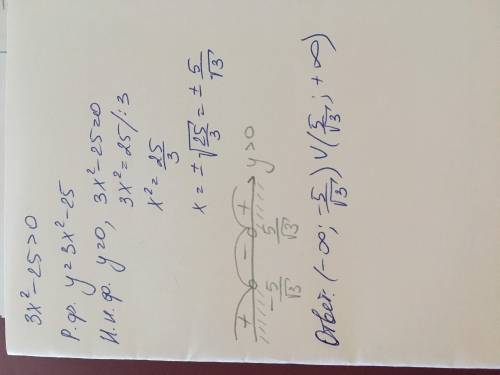 3x²-25>0
Р.ф. y=3x²-25
Н.н.ф. y=0, 3x²-25=0
3x²=25/:3
x²=25/3
x=±√(25/3)=±5/√3
+ - + y>0
-5/√3 5/√3
Ответ: (-∞; -5/√3) ∪ (5/√3; +∞)